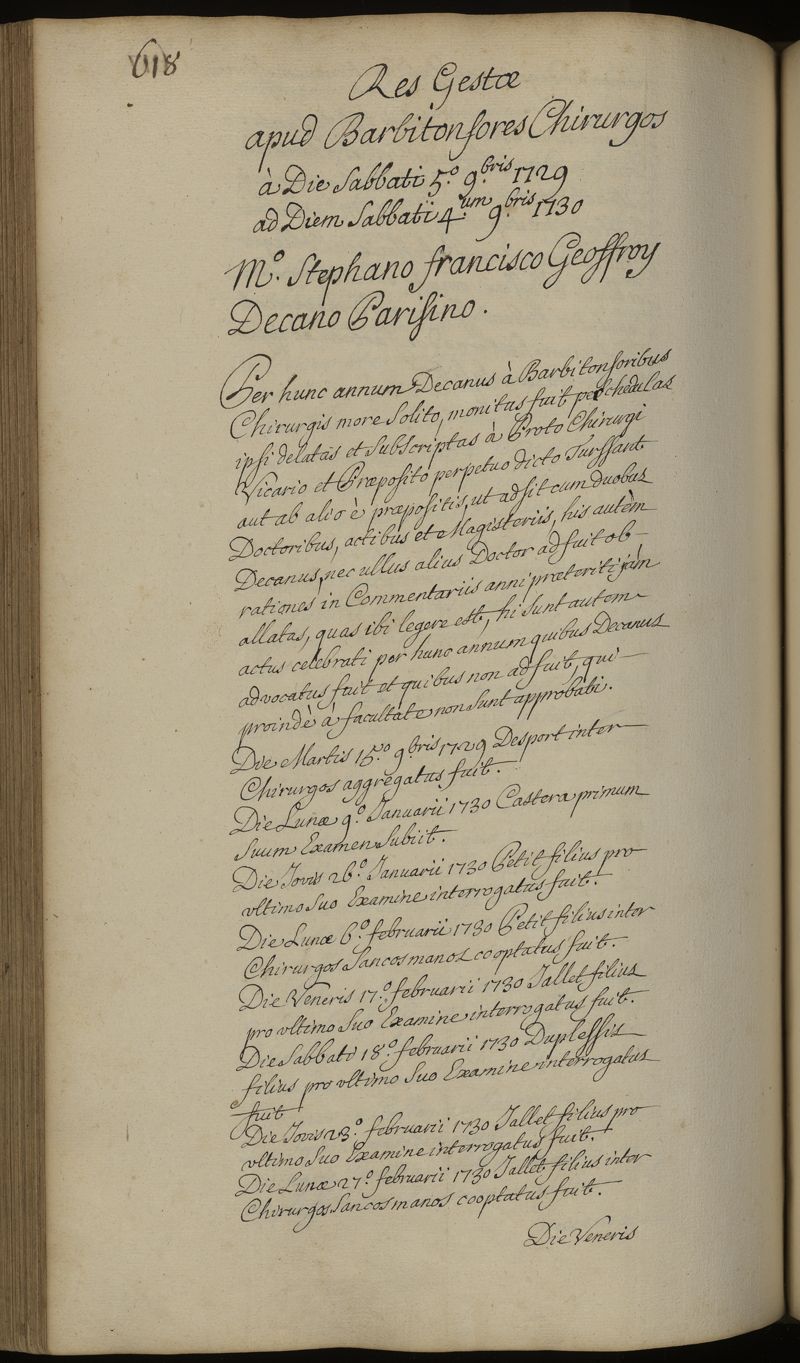 618
Res Gestæ
apud Barbitonsores Chirurgos
à Die Sabbati 5.º 9.bris 1729
ad Diem Sabbati 4.um 9.bris 1730
M.º Stephano francisco Geoffroy
Decano Parisino.
Per hunc annum Decanus à Barbitonsoribus
Chirurgis more solito, monitus fuit per schedulas
ipsi delatas et subscriptas à Proto Chirurgi
Vicario et Præposito perpetuo dicto Turssant
aut ab alio è præpositis, ut adsit cum duobus
Doctoribus, actibus et Magisteriis, his autèm
Decanus, nec ullus alius Doctor adfuit ob
rationes in Commentariis anni præteriti jàm
allatas, quas ibi legere est, hi sunt autem
actus celebrati per hunc annum quibus Decanus
advocatus fuit et quibus non adfuit, qui
proindè à facultate non sunt approbati.
Die Martis 15.º 9.bris 1729 Desport inter
Chirurgos aggregatus fuit.
Die Lunæ 9.º Januarii 1730 Castera primum
suum Examen subiit.
Die Jovis 26.º Januarii 1730 Petit filius pro
ultimo suo Examine interrogatus fuit.
Die Lunæ 6.º februarii 1730 Petit filius inter
Chirurgos Sancosmanos cooptatus fuit.
Die Veneris 17.º februarii 1730 Tallet filius
pro ultimo suo Examine interrogatus fuit.
Die Sabbati 18.º februarii 1730 Duplessis
filius pro ultimo suo Examine interrogatus
fuit
Die Jovis 23.º februarii 1730 Tallet filius pro
ultimo suo Examine interrogatus fuit.
Die Lunæ 27.º februarii 1730 Tallet filius inter
Chirurgos Sancosmanos cooptatus fuit.
Die Veneris